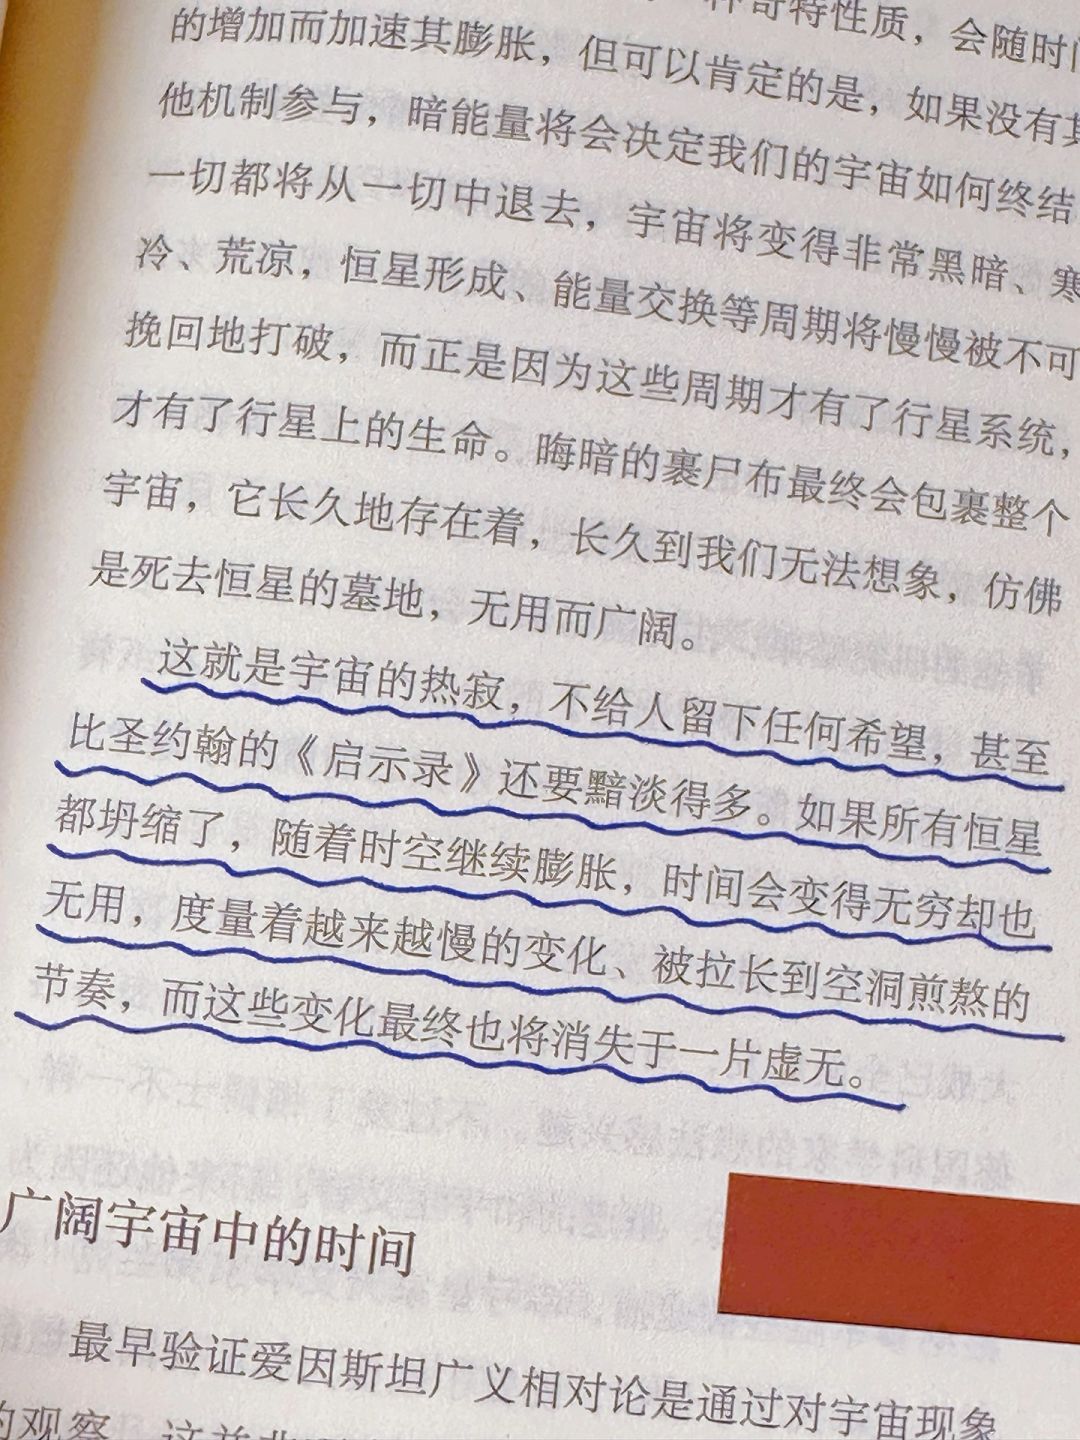 奇特性质，会随时间
的增加而加速其膨胀，但可以肯定的是，如果没有其
他机制参与，暗能量将会决定我们的宇宙如何终结
一切都将从一切中退去，宇宙将变得非常黑暗、寒
冷、荒凉，恒星形成、能量交换等周期将慢慢被不可
挽回地打破，而正是因为这些周期才有了行星系统，
才有了行星上的生命。晦暗的裹尸布最终会包裹整个
宇宙，它长久地存在着，长久到我们无法想象，仿佛
是死去恒星的墓地，无用而广阔。
这就是宇宙的热寂，不给人留下任何希望，甚至
比圣约翰的《启示录》还要黯淡得多。如果所有恒星
都坍缩了，随着时空继续膨胀，时间会变得无穷却也
无用，度量着越来越慢的变化、被拉长到空洞煎熬的
节奏，而这些变化最终也将消失于一片虚无。
广阔宇宙中的时间
最早验证爱因斯坦广义相对论是通过对宇宙现象
的观察